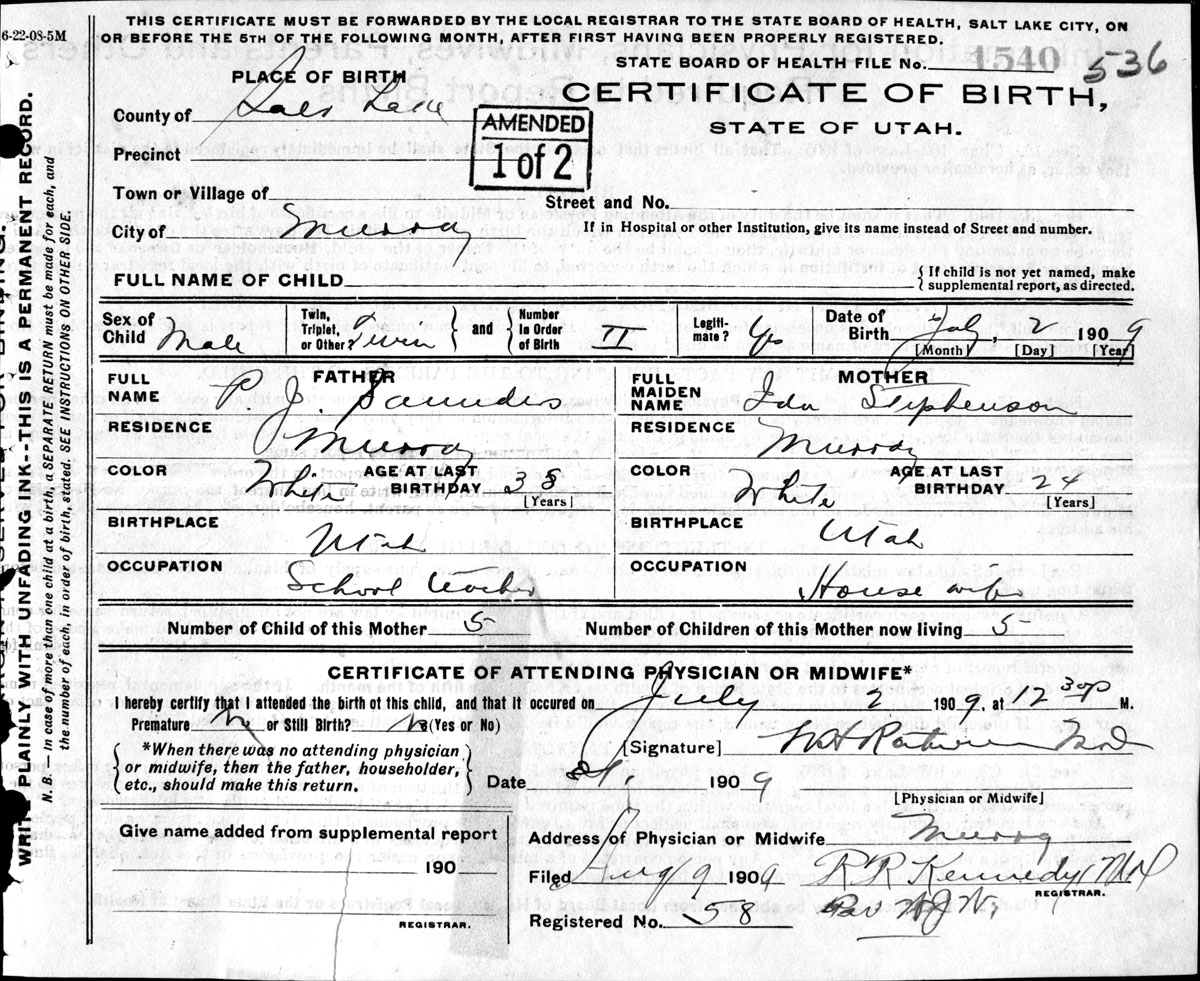 THIS CERTIFICATE MUST BE FORWARDED BY THE LOCAL REGISTRAR TO THE STATE BOARD OF HEALTH, SALT LAKE CITY, ON
OR BEFORE THE 5TH OF THE FOLLOWING MONTH, AFTER FIRST HAVING BEEN PROPERLY REGISTERED.
6-22-08-5M
STATE BOARD OF HEALTH FILE No. 1540 536
PLACE OF BIRTH
CERTIFICATE OF BIRTH,
STATE OF UTAH.
County of Salt Lake
AMENDED
1 of 2
Precinct
Town or Village of
Street and No.
City of Murray
If in Hospital or other Institution, give its name instead of Street and number.
FULL NAME OF CHILD
{ If child is not yet named, make
supplemental report, as directed.
Sex of Child Male
Twin, Triplet, or Other? Twin } and { Number in Order of Birth II
Legiti-mate? Yes
Date of Birth July, 2 1909
[Month] [Day] [Year]
FATHER
FULL NAME P J. Saunders
MOTHER
FULL MAIDEN NAME Ida Stephenson
RESIDENCE Murray
RESIDENCE Murray
COLOR White AGE AT LAST BIRTHDAY 38 [Years]
COLOR White AGE AT LAST BIRTHDAY 24 (Years)
BIRTHPLACE Utah
BIRTHPLACE Utah
OCCUPATION School teacher
OCCUPATION House wife
Number of Child of this Mother 5
Number of Children of this Mother now living 5
CERTIFICATE OF ATTENDING PHYSICIAN OR MIDWIFE*
I hereby certify that I attended the birth of this child, and that it occured on July 2 1909, at 12 30 P M.
Premature? No or Still Birth? No (Yes or No)
{ *When there was no attending physician
or midwife, then the father, householder,
etc., should make this return. }
[Signature]
Date 1909
[Physician or Midwife]
Give name added from supplemental report
190
REGISTRAR.
Address of Physician or Midwife Murray
Filed Aug 9 1909 R R Kennedy MD
REGISTRAR.
Registered No. 58
PAINLY WITH UNFADING INK--THIS IS A PERMANENT RECORD.
N. B.—In case of more than one child at a birth, a SEPARATE RETURN must be made for each, and
the number of each, in order of birth, stated. SEE INSTRUCTIONS ON OTHER SIDE.